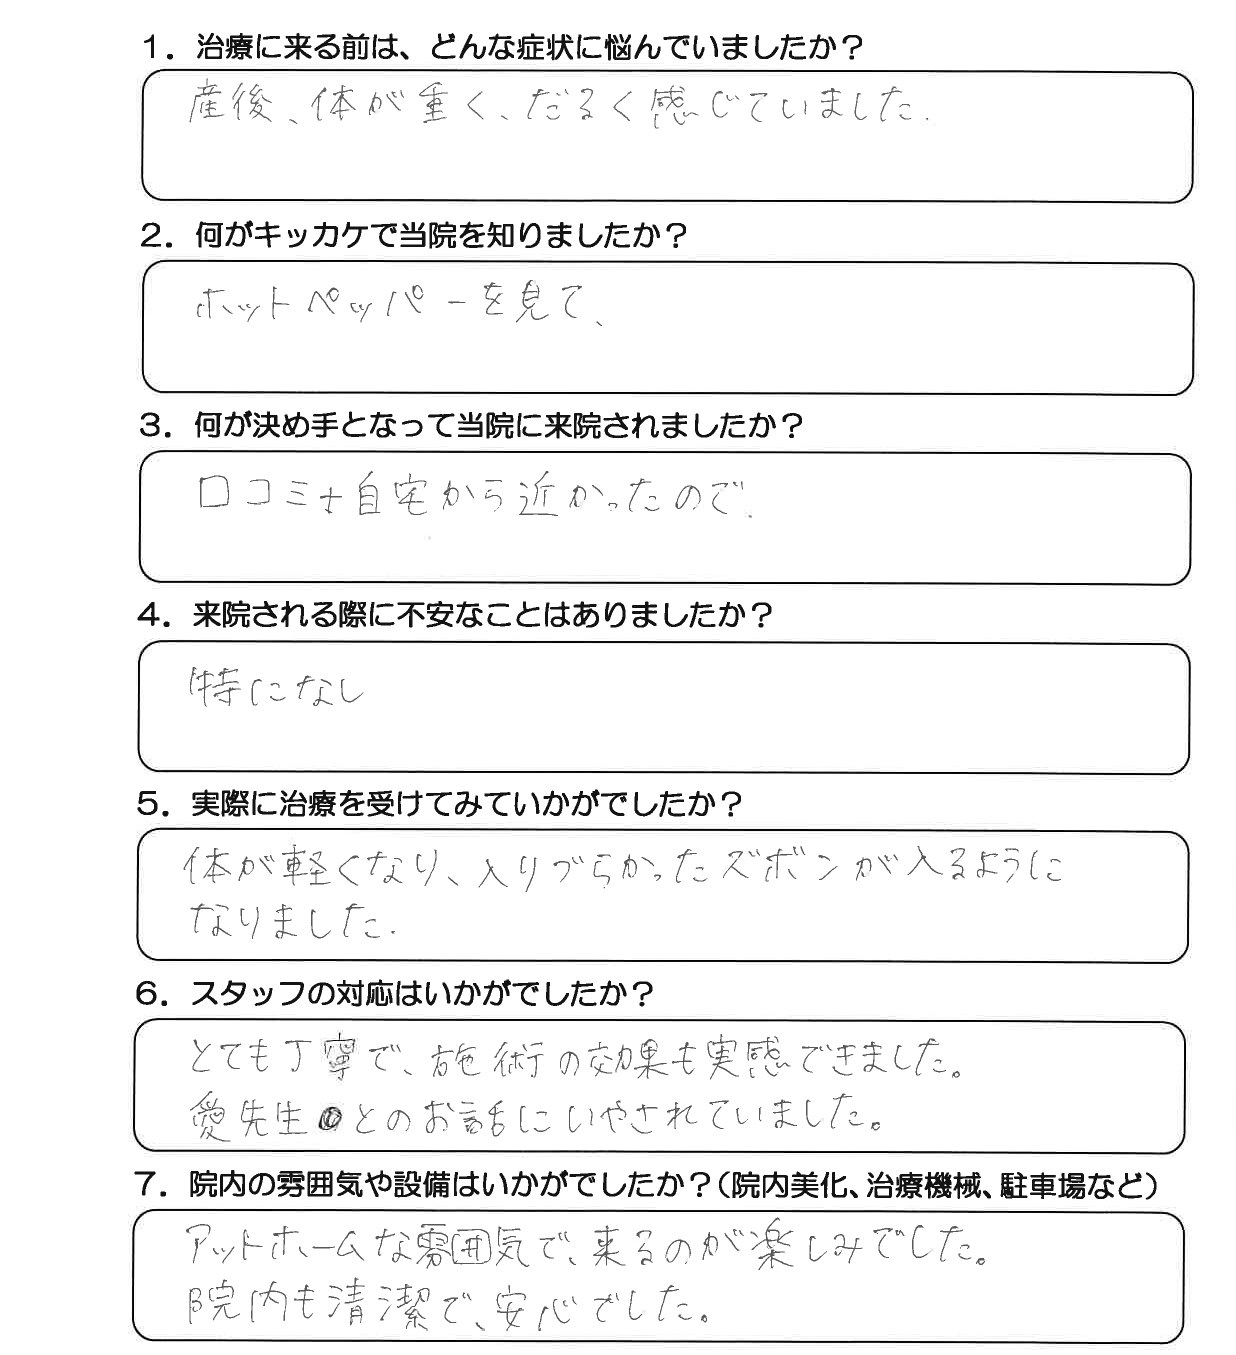 1．治療に来る前は、どんな症状に悩んでいましたか？
産後、体が重く、だるく感じていました.
2．何がキッカケで当院を知りましたか？
ホットペッパーを見て、
3．何が決め手となって当院に来院されましたか？
口コミ+自宅から近かったので.
4．来院される際に不安なことはありましたか？
特になし
5．実際に治療を受けてみていかがでしたか？
体が軽くなり、入りづらかったズボンが入るように
なりました.
6．スタッフの対応はいかがでしたか？
とても丁寧で、施術の効果も実感できました。
愛先生とのお話にいやされていました。
7．院内の雰囲気や設備はいかがでしたか？（院内美化、治療機械、駐車場など）
アットホームな雰囲気で、来るのが楽しみでした。
院内も清潔で、安心でした。